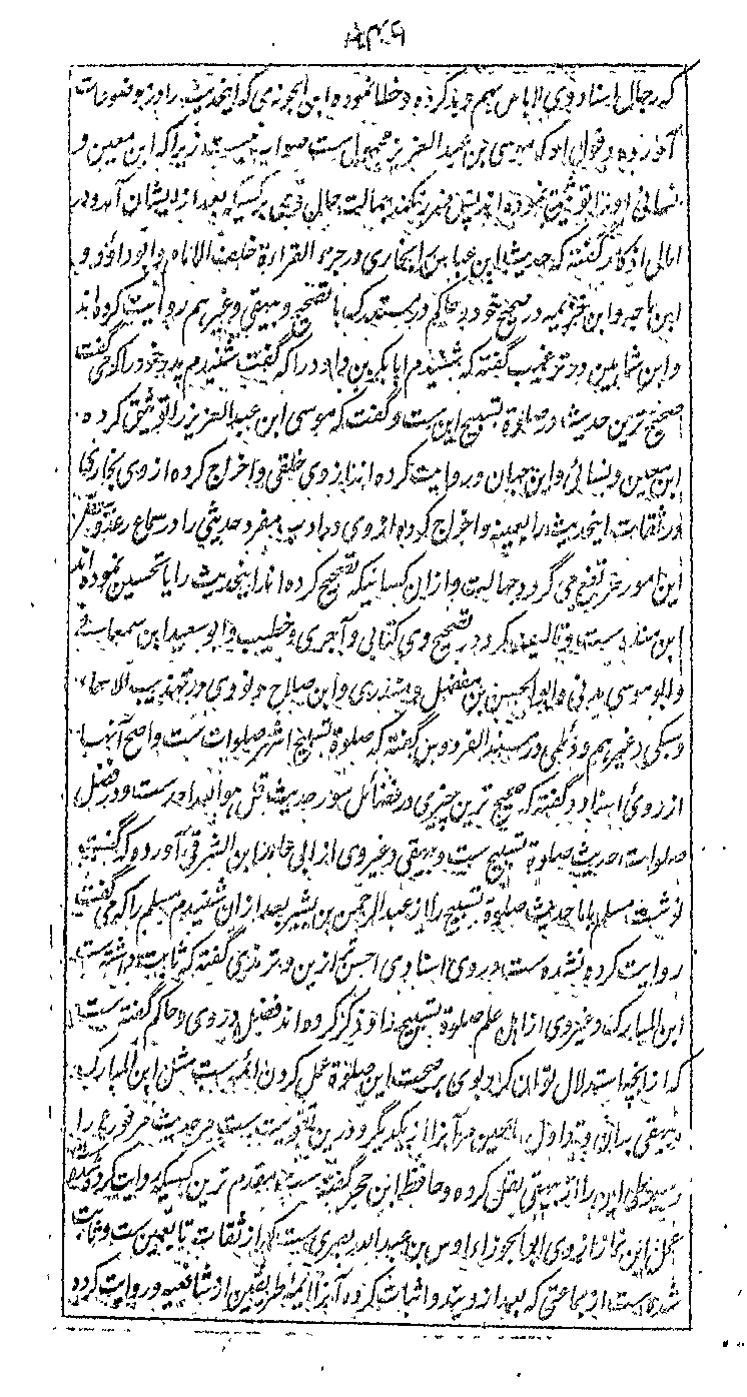 که رجال اسناد وی لاباس بهم و بد کرده و خطا نموده ابن الجوزی که اینحدیث را در موضوعات
آورده و قول او که موسی بن عبدالعزیز مجهول ست صواب نیست زیرا که ابن معین و
نسائی او را توثیق نموده اند پس ضرر نکند جهالت حال وی بر کسیکه بعد از ایشان آمد و در
امالی اذکار گفته که حدیث ابن عباس را بخاری در جزء القراءة خلف الامام و ابو داؤد و
ابن ماجه و ابن خزیمه در صحیح خود و حاکم در مستدرک با تصحیح و بیهقی و غیر هم روایت کرده اند
و ابن شاهین در ترغیب گفته که شنیدم ابا بکر بن داود را که گفت شنیدم پدر خود را که می گفت
صحیح ترین حدیث در صلوة تسبیح این ست و گفت که موسی ابن عبدالعزیز را توثیق کرده
ابن معین و نسائی و ابن حبان و روایت کرده اند از وی خلقی و اخراج کرده از وی بخاری
در اینحدیث را بعینه و اخراج کرده از وی در ادب مفرد حدیثی را در سماع رعد و
این امور مرتفع می گردد جهالت و از ان کسانیکه تصحیح کرده اند اینحدیث را یا تحسین نموده اند
ابن منده ست و تالیف کرد در تصحیح وی کتابی و آجری و خطیب و ابو سعید ابن سمعانی
و ابو موسی مدنی و ابو الحسن بن مفضل و منذری و ابن صلاح و نووی در تهذیب الاسماء
و سبکی و غیر هم و دیلمی در مسند الفردوس گفته که صلوة تسبیح اشهر صلوات ست و اصح آنها
از روی اسناد و گفته که صحیح ترین چیزی در فضائل سور حدیث قل هو الله احد ست و در فضل
صلوات حدیث صلوة تسبیح ست و بیهقی و غیر وی از ابی حامد ابن الشرقی آورده که گفته
نوشت مسلم با ما حدیث صلوة تسبیح را از عبدالرحمن بن بشیر بعد ازان شنیدم مسلم را که می گفت
روایت کرده نشده ست در وی اسنادی احسن ازین و ترمذی گفته که ثابت داشته ست
ابن المبارک و غیر وی از اهل علم صلوة تسبیح را و ذکر کرده اند فضل در وی و حاکم گفته ست
که از انچه استدلال توان کرد بوی بر صحت این صلوة عمل کردن ائمه ست مثل ابن المبارک
بیهقی و تداول از یکدیگر و درین تقویت ست مر حدیث مرفوع را
سیوطی این را از بیهقی نقل کرده و حافظ ابن حجر گفته ست مقدم ترین کسیکه روایت کرده شده
عمل این نماز از وی ابو الجوزاء اوس بن عبدالله بصری ست که از ثقات تابعین ست و ثابت
شده ست از جماعتی که بعد از ویند و اثبات کرده آنرا ائمه طریقین از شافعیه و روایت کرد